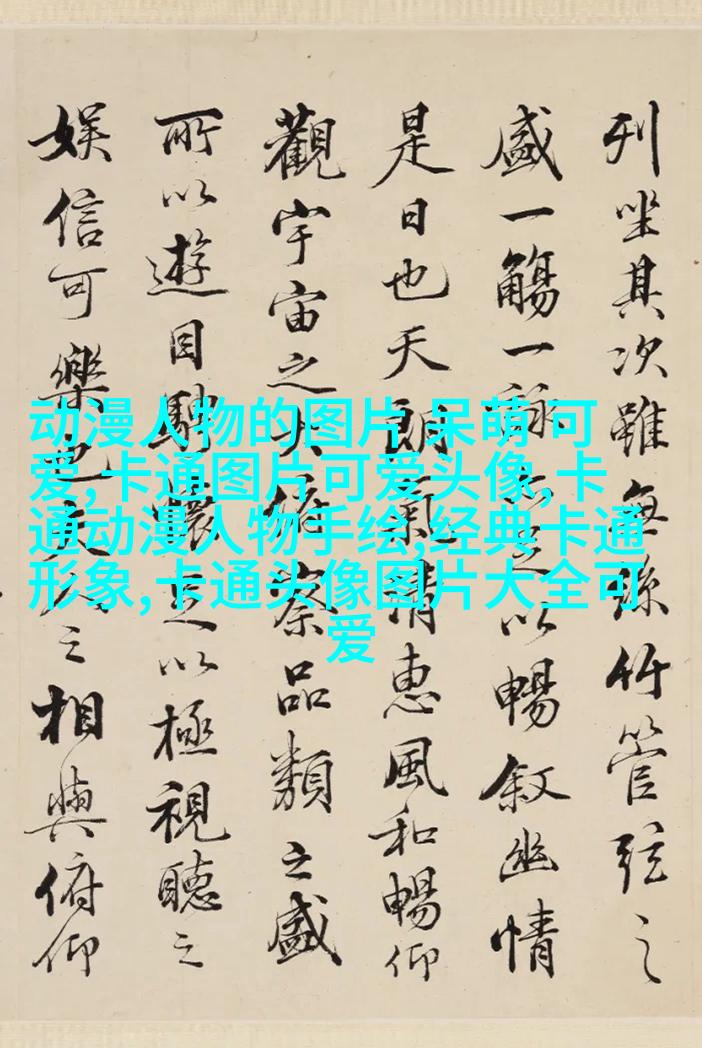 列坐其次雖無絲竹管弦之
盛一觴一詠亦足以暢敘幽情
是日也天朗氣清惠風和暢仰
觀宇宙之大俯察品類之盛
所以遊目騁懷足以極視聽之
娛信可樂也夫人之相與俯仰
动漫人物的图片 呆萌 可
爱,卡通图片可爱头像,卡
通动漫人物手绘,经典卡通
形象,卡通头像图片大全可
爱